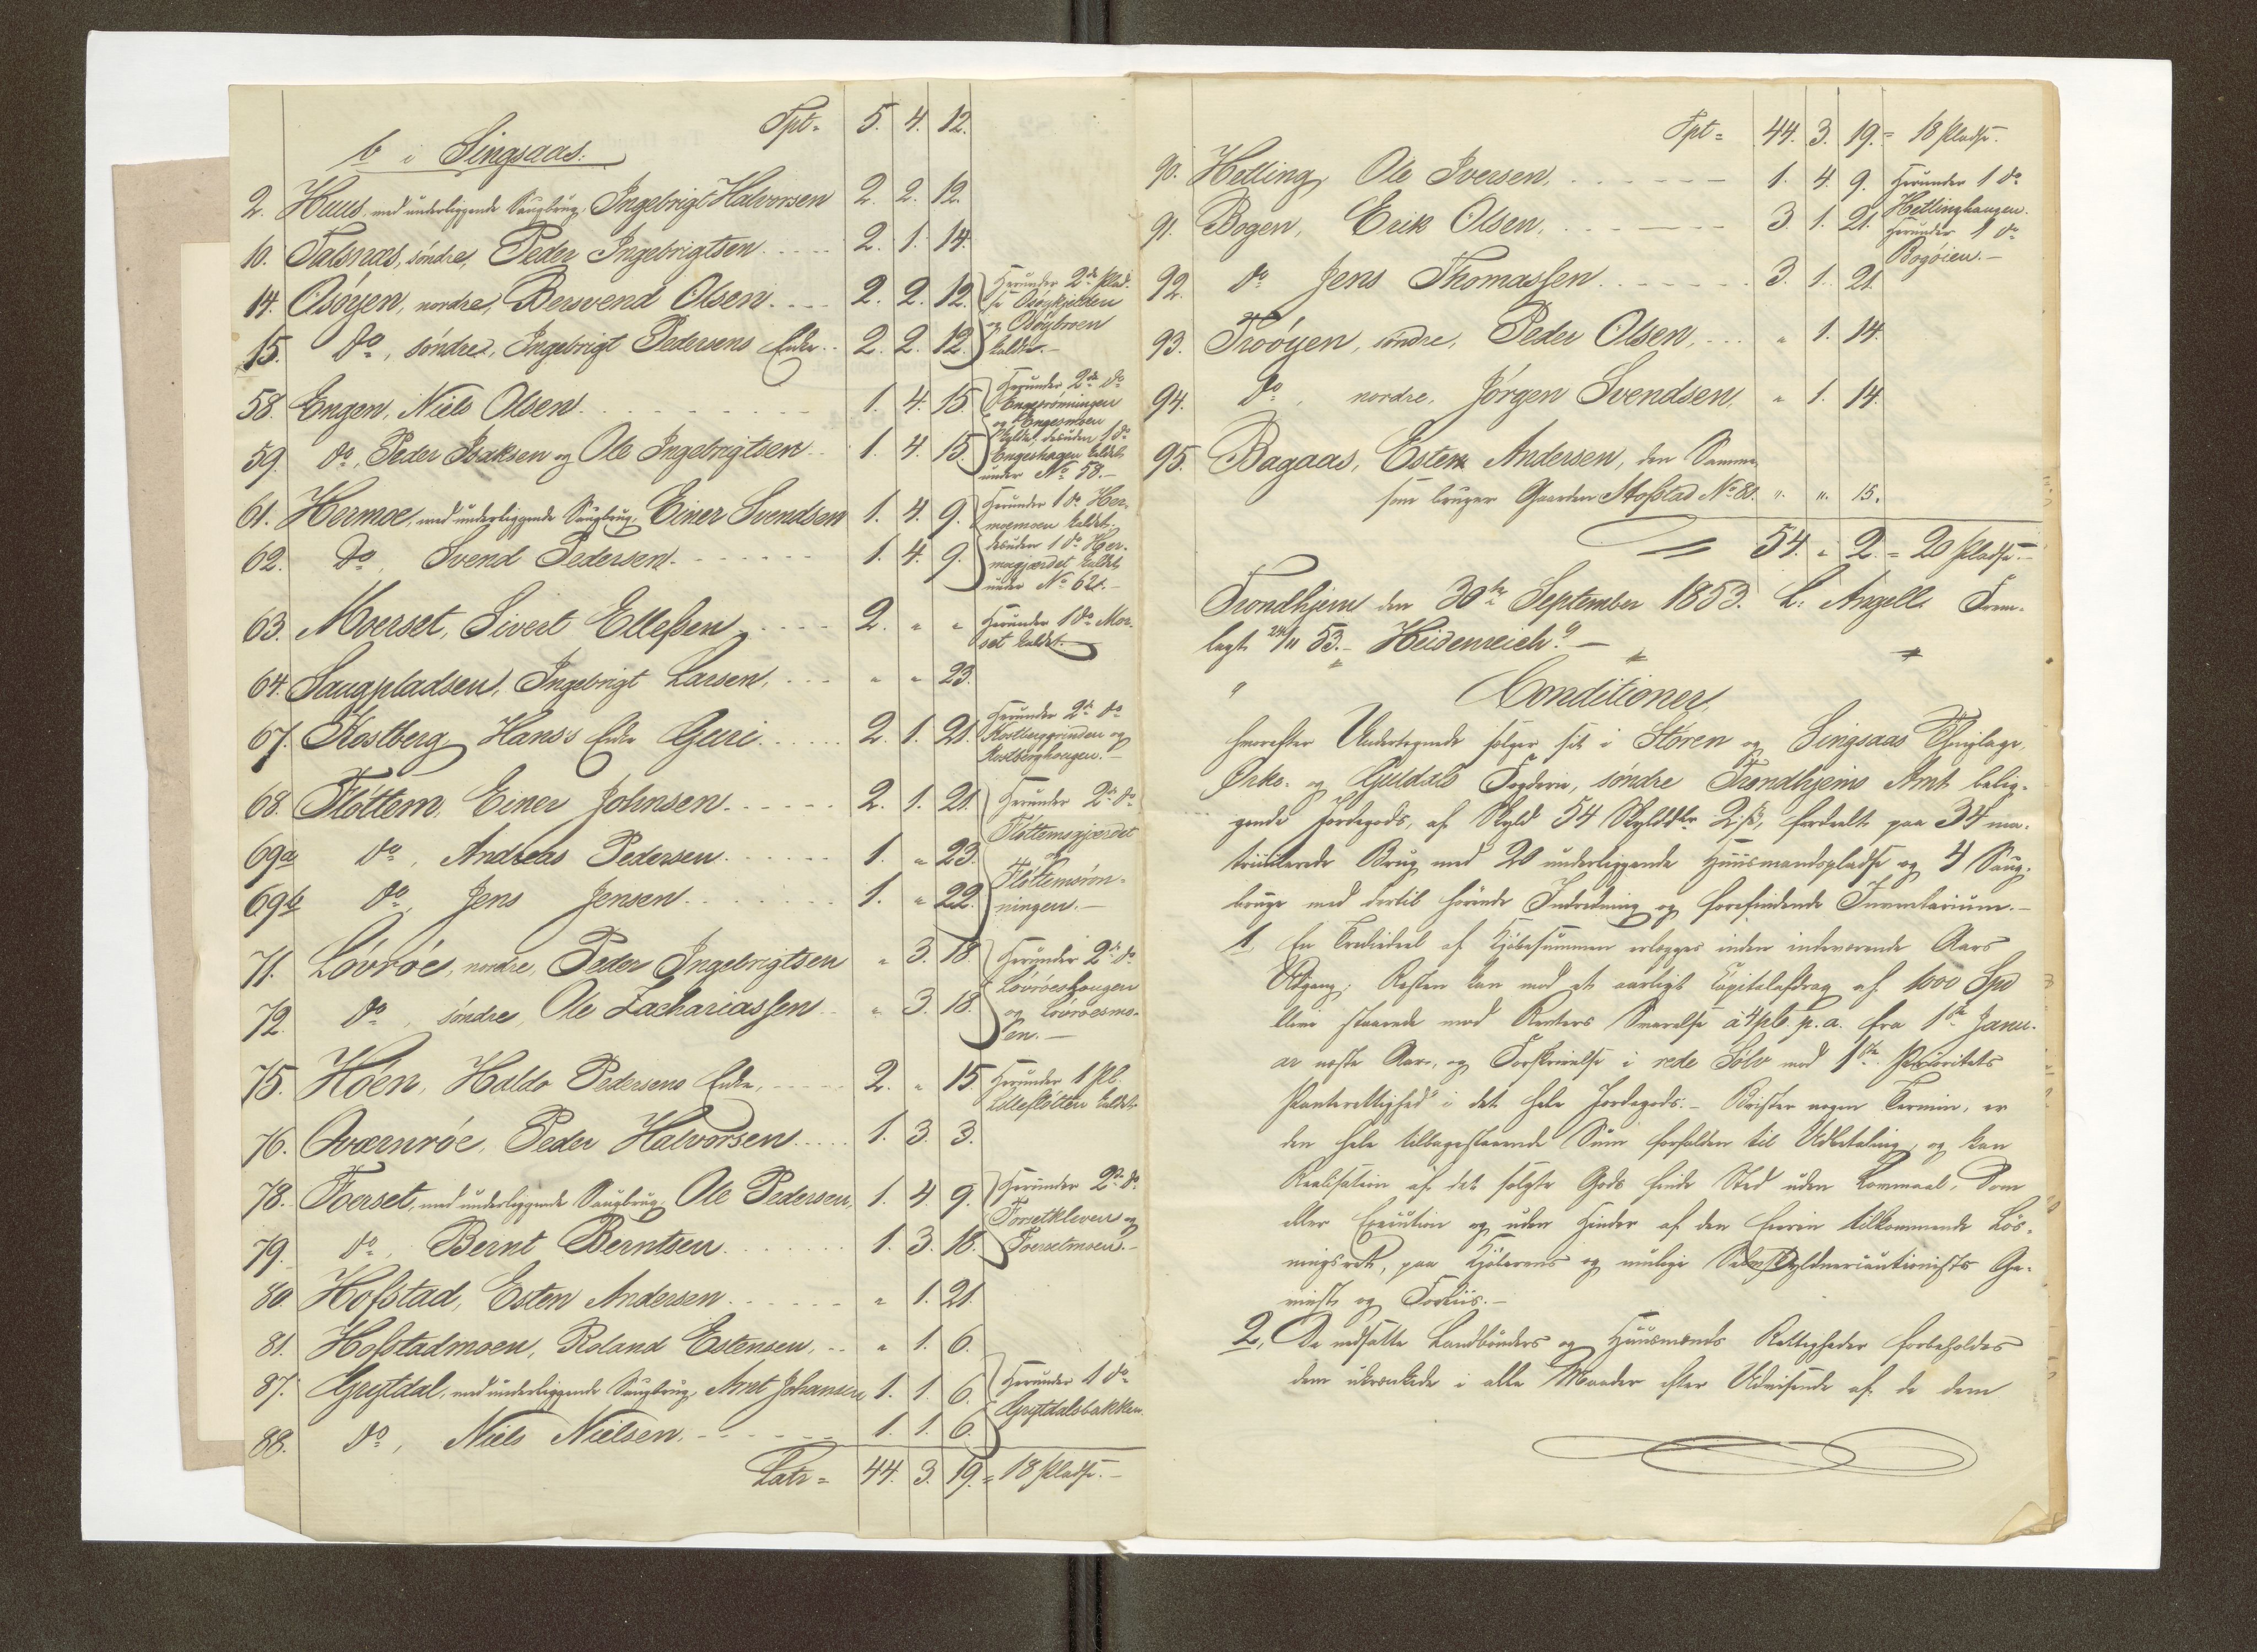 Tpt = 5. 4. 12.
b i Singsaas.
2. Huus, med underliggende Saugbrug, Ingebrigt Halvorsen 2. 2. 12.
10. Talsnes, søndre, Peder Ingebrigtsen 2. 1. 14.
14. Osøyen, nordre, Bersvend Olsen 2. 2. 12. Herunder 2de Plad-
se Osøykjelden
15. do, søndre, Ingebrigt Pedersens Enke 2. 2. 12. og Osøybroen
kaldte.-
58. Engen, Niels Olsen 1. 4. 15. Herunder 2de do
Engerønningen
og Engesmoen
59. do, Peder Isaksen og Ole Ingebrigtsen 1. 4. 15. kaldet, desuden 1 do
Engeshagen kaldet
under No 58.-
61. Hermoe, med underliggende Saugbrug, Einer Svendsen 1. 4. 9. Herunder 1 do Her-
moemoen kaldet.
62. do, Svend Pedersen 1. 4. 9. desuden 1 do Her-
moegjærdet kaldet
under No 62.-
63. Moerset, Sivert Ellefsen 2. " " Herunder 1 do Moer-
set kaldet.
64. Saugpladsen, Ingebrigt Larsen " " 23.
67. Kostberg, Hans's Enke Guri 2. 1. 21. Herunder 2de do
Kostberggrinden og
Kostberghougen.-
68. Fløttem, Einer Johnsen 2. 1. 21. Herunder 2de do
Fløttemsgjærdet
69a do, Andreas Pedersen 1. " 23. og
Fløttemsrøn-
69b do, Jens Jensen 1. " 22. ningen.-
71. Løvrøe, nordre, Peder Ingebrigtsen " 3. 18. Herunder 2de do
Løvrøeshougen
72. do, søndre, Ole Zachariassen " 3. 18. og Løvrøesmo-
en.-
75. Høen, Haldo Pedersens Enke, 2. " 15. Herunder 1 Pl.
kaldet
76. Qværnrøe, Peder Halvorsen 1. 3. 3.
78. Foerset, med underliggende Saugbrug, Ole Pedersen, 1. 4. 9. Herunder 2de do
Forsetkleven og
79. do, Bernt Berntsen 1. 3. 18. Foersetmoen.-
80. Hofstad, Esten Andersen " 1. 21.
81. Hofstadmoen, Roland Estensen, " 1. 6.
87. Grytdal, med underliggende Saugbrug, Arnt Johansen 1. 1. 6. Herunder 1 do
Grytdalsbakken.
88. do, Niels Nielsen 1. 1. 6.
Latr = 44. 3. 19. = 18 Pladse.-
Tpt = 44. 3. 19. = 18 Pladse.
90. Hetling, Ole Iversen, 1. 4. 9. Herunder 1 do
Hetlinghaugen.
91. Bogen, Erik Olsen, 3. 1. 21. Herunder 1 do
Bogøien.-
92. do Jens Thomassen 3. 1. 21.
93. Trøøyen, søndre, Peder Olsen, " 1. 14.
94. do, nordre, Jørgen Svendsen " 1. 14.
95. Bagaas, Esten Andersen, den Samme
som bruger Gaarden Hofstad No 80. " " 15.
= 54. " 2. = 20 Pladse.-
Trondhjem den 30te September 1853. L: Angell. Frem-
lagt 24/11 53.- Heidenreich."-
" Conditioner,
hvorefter Undertegnede sælger sit i Støren og Singsaas Thinglage,
Orke- og Guldals Fogderie, søndre Trondhjems Amt belig-
gende Jordegods, af Skyld 54 Skylddlr 2 ß, fordeelt paa 34 ma-
trikulerede Brug med 20 underliggende Huusmandspladse og 4 Saug-
bruge med dertil hørende Indretning og forefindende Inventarium.-
1. En Trediedeel af Kjøbesummen erlægges inden indeværende Aars
Udgang; Resten kan mod et aarligt Capitalafdrag af 1000 Spd
blive staaende mod Renters Svarelse à 4 pCt. p.a. fra 1ste Janu-
ar næste Aar, og Forskrivelse i rede Sølv med 1ste Prioritets
Panterettighed i det hele Jordegods.- Brister nogen Termin, er
den hele tilbagestaaende Sum forfalden til Udbetaling, og kan
Realisation af det solgte Gods finde Sted uden Lovmaal, Dom
eller Execution og uden Hinder af den Eieren tilkommende Løs-
ningsret, paa Kjøberens og mulige Selvskyldnercautionists Ge-
vinst og Forliis.-
2, De indsatte Landbønders og Huusmænds Rettigheder forbeholdes
dem ukrænkede i alle Maader efter Udvisende af de dem